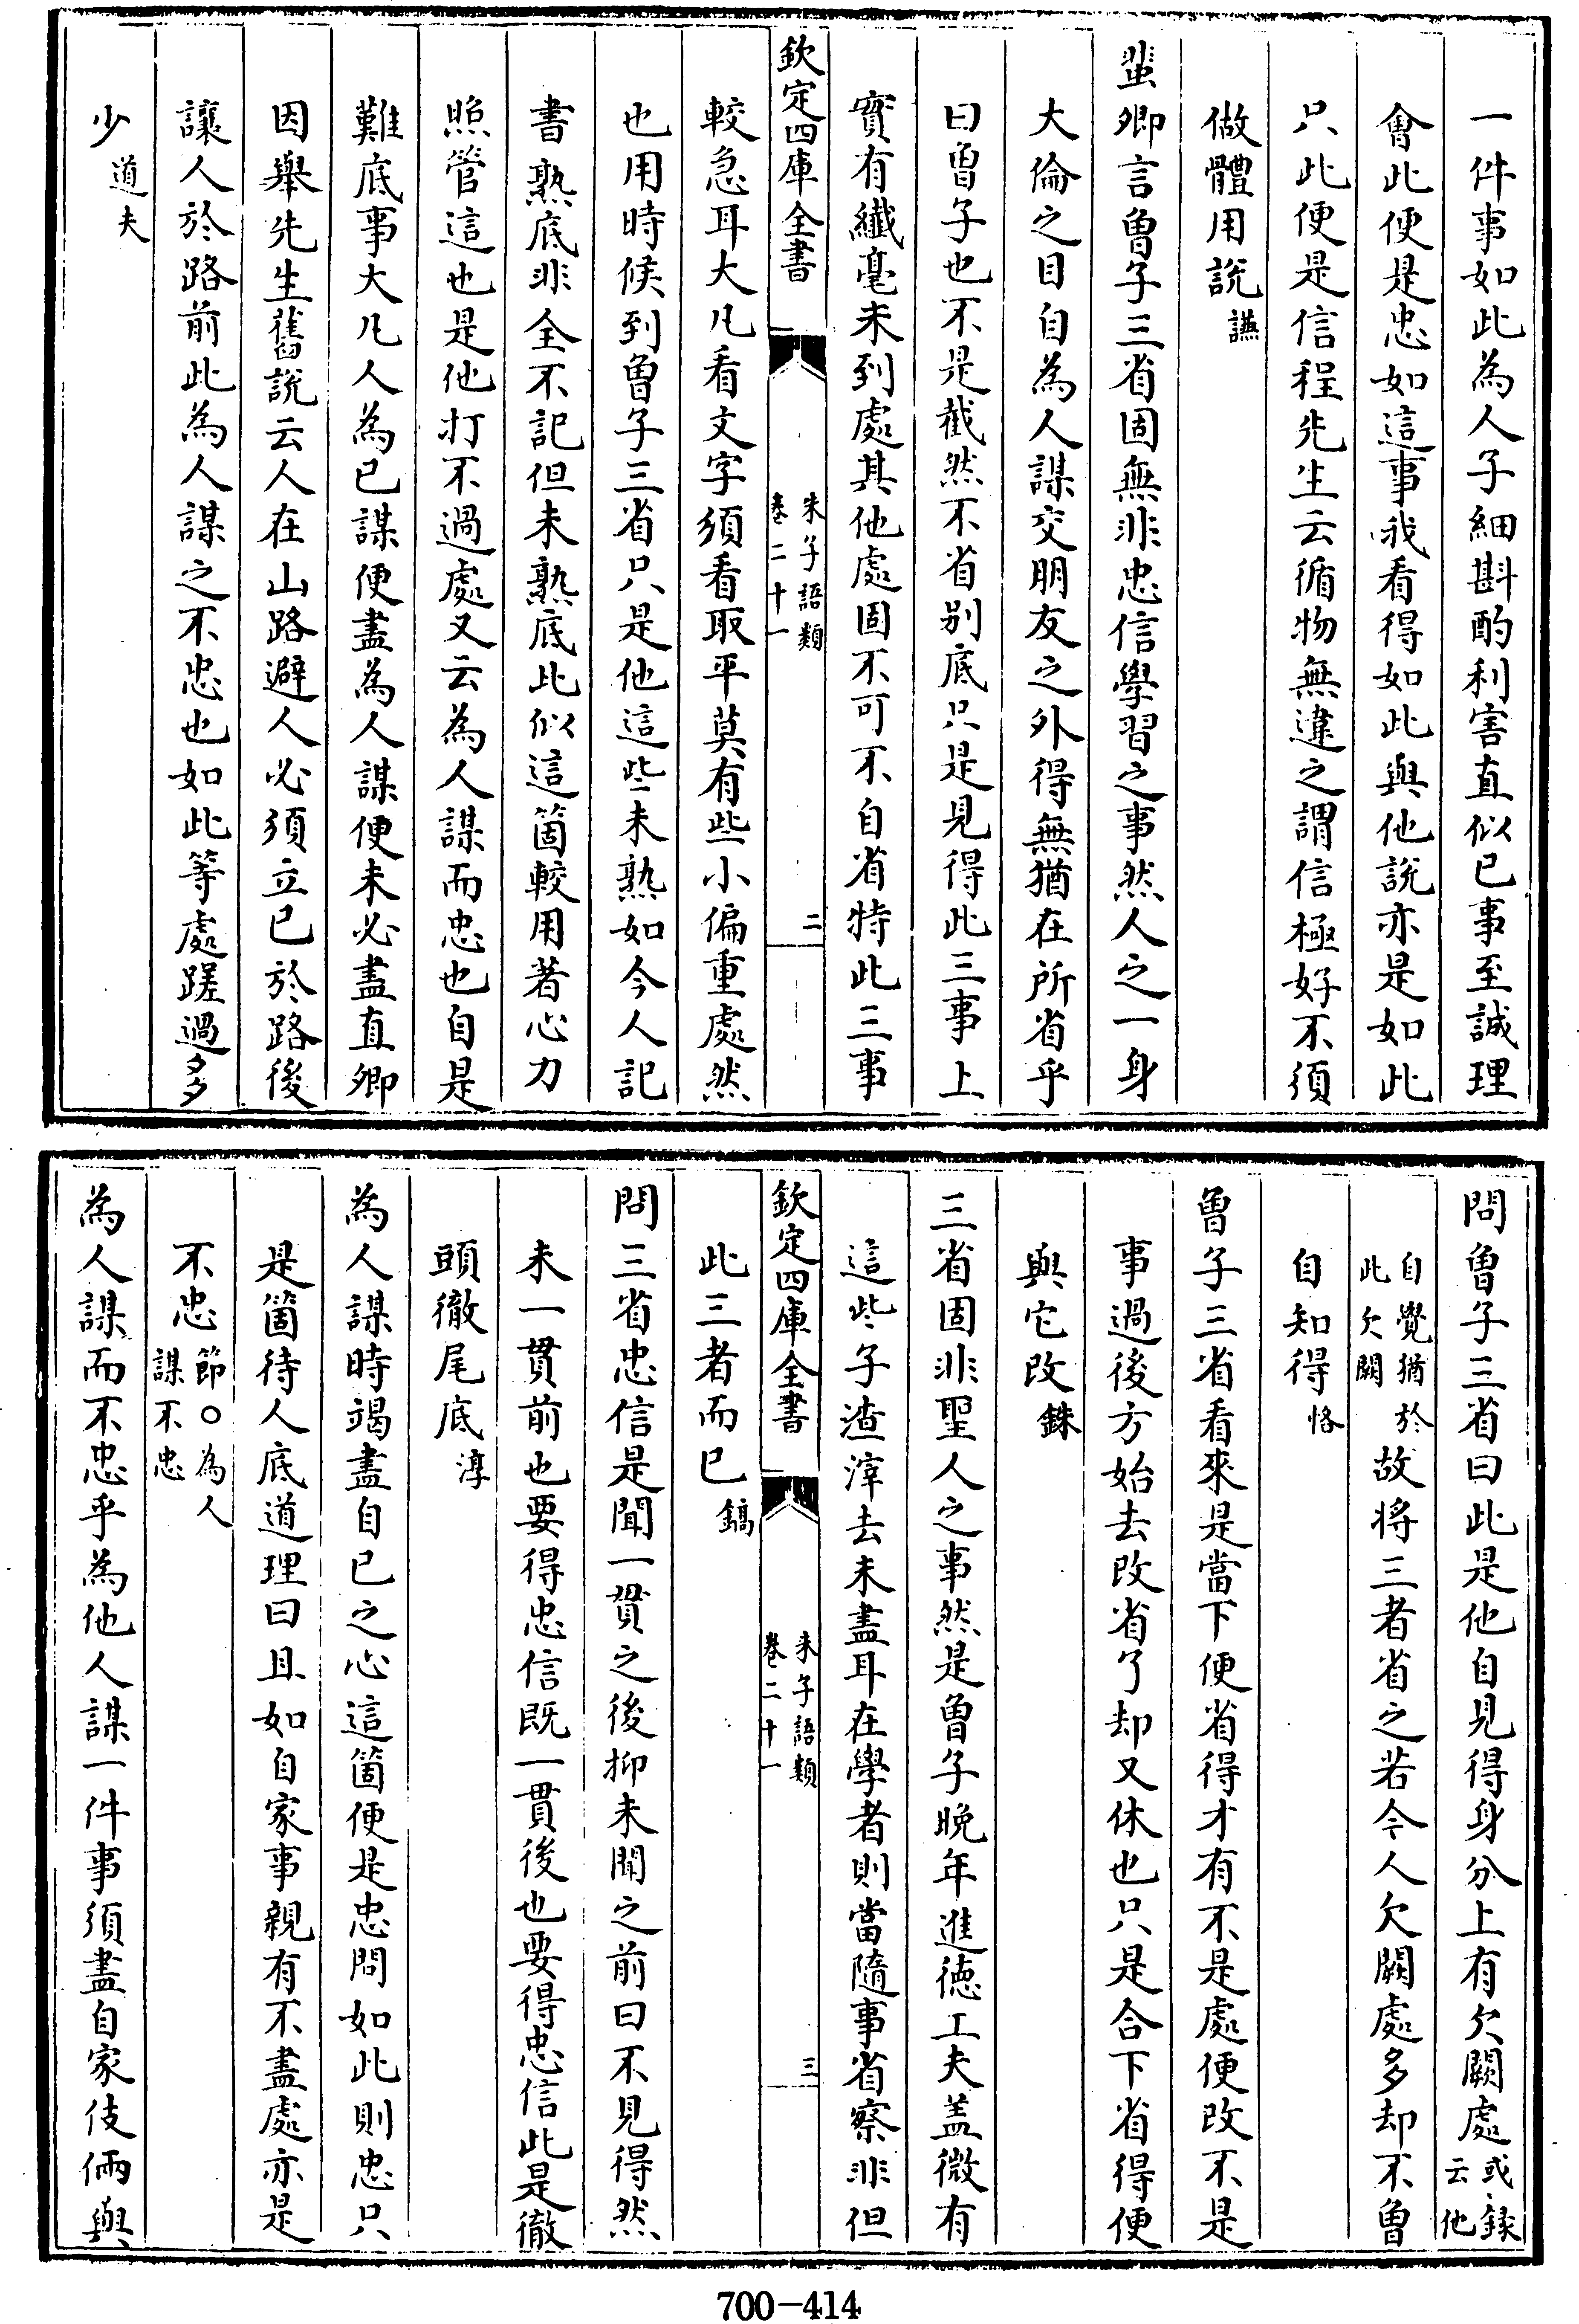 一件事如此為人子細斟酌利害直似已事至誠理
會此便是忠如這事我看得如此與他說亦是如此
只此便是信程先生云循物無違之謂信極好不須
做體用說 讌
蜚卿言曾子三省固無非忠信學習之事然人之一身
大倫之目自為人謀交朋友之外得無猶在所省乎
曰曾子也不是截然不省别底只是見得此三事上
實有纖毫未到處其他處固不可不自省特此三事
欽定四庫全書
朱子語類
卷二十一
二
較急耳大凡看文字須看取平莫有些小偏重處然
也用時候到曾子三省只是他這些未熟如今人記
書熟底非全不記但未熟底此似這箇較用著心力
照管這也是他打不過處又云為人謀而忠也自是
難底事大凡人為已謀便盡為人謀便未必盡直卿
因舉先生舊說云人在山路避人必須立已於路後
讓人於路前此為人謀之不忠也如此等處蹉過多
少 道夫
問曾子三省曰此是他自見得身分上有欠闕處 或錄云他
自覺猶於此欠闕 故將三者省之若今人欠闕處多却不曾
自知得 恪
曾子三省看來是當下便省得才有不是處便改不是
事過後方始去改省了却又休也只是合下省得便
與它改 銖
三省固非聖人之事然是曾子晚年進德工夫盖微有
這些子渣滓去未盡耳在學者則當隨事省察非但
欽定四庫全書
朱子語類
卷二十一
三
此三者而已 鎬
問三省忠信是聞一貫之後抑未聞之前曰不見得然
未一貫前也要得忠信既一貫後也要得忠信此是徹
頭徹尾底 淳
為人謀時竭盡自已之心這箇便是忠問如此則忠只
是箇待人底道理曰且如自家事親有不盡處亦是
不忠 節○為人謀不忠
為人謀而不忠乎為他人謀一件事須盡自家伎倆與
700-414